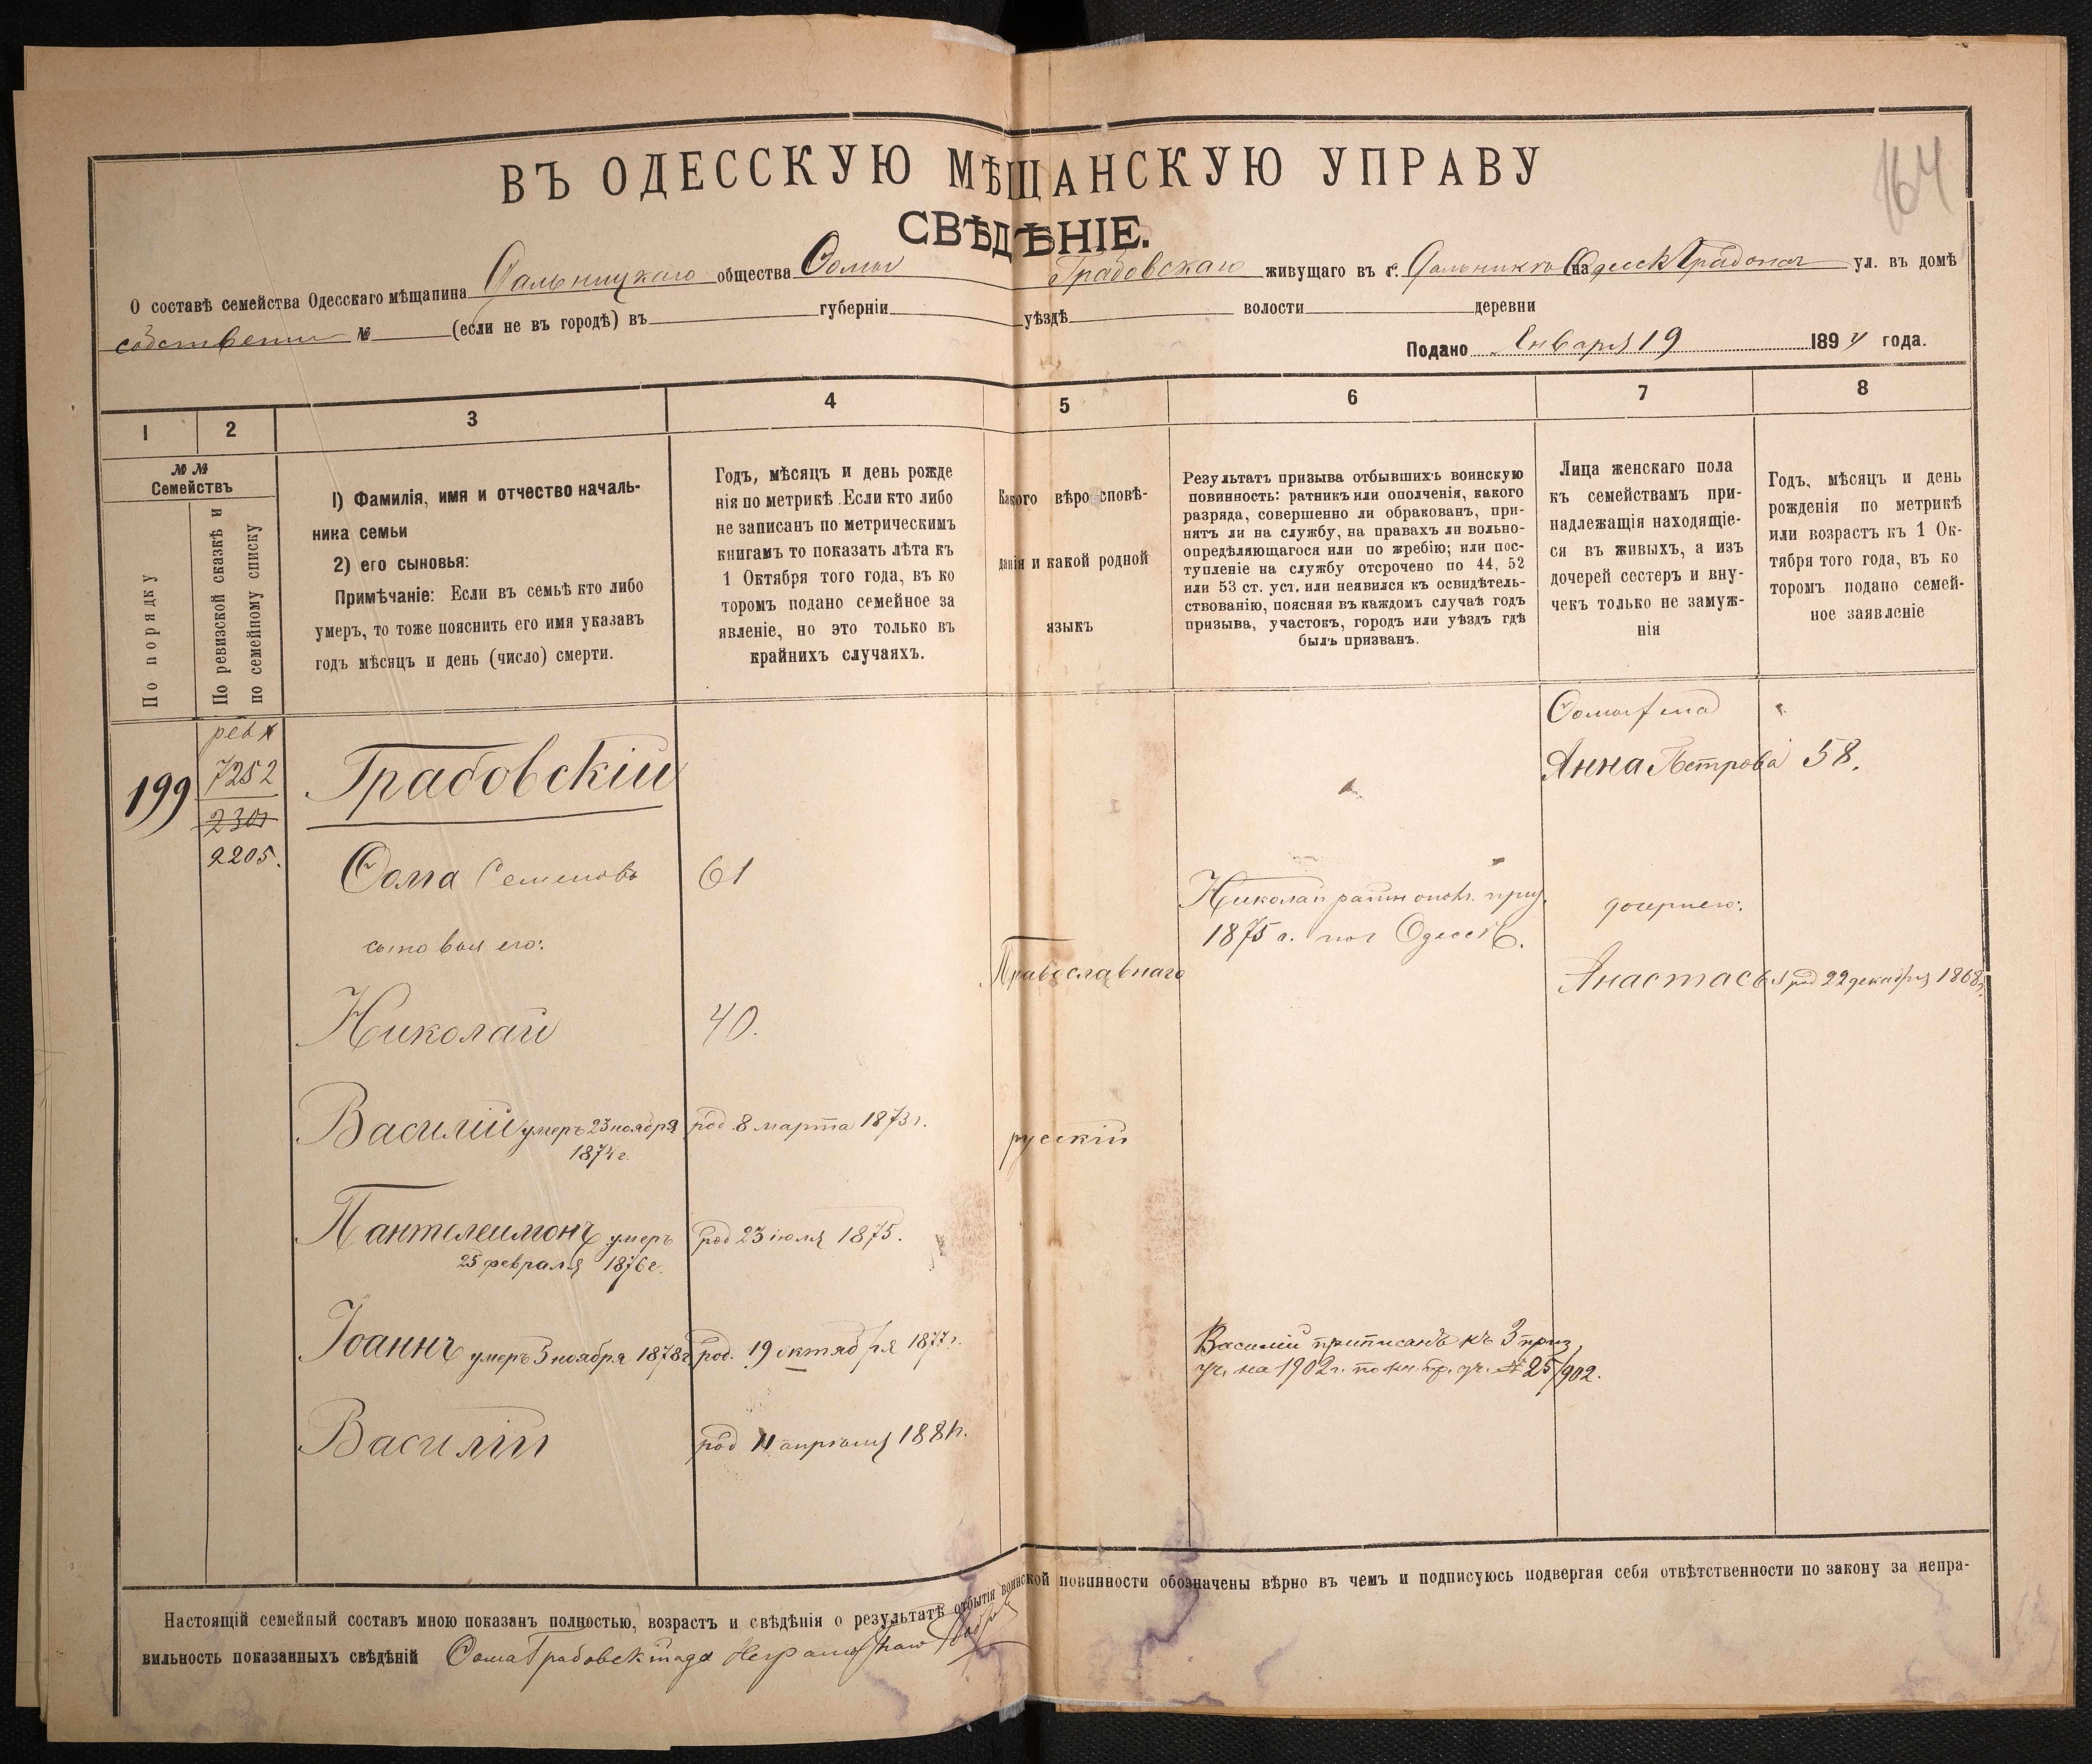 164
ВЪ ОДЕССКУЮ МѢЩАНСКУЮ УПРАВУ
СВѢДѢНІЕ.
О составѣ семейства Одесскаго мѣщанина Дальницкаго общества Ѳомы Грабовскаго живущаго въ г. Дальникѣ Одесск Градонач ул. въ домѣ
собственн № (если не въ городѣ) въ губерніи уѣздѣ волости деревни
Подано Января 19 1894 года.
1 2 3 4 5 6 7 8
№ № Семействъ
По порядку
По ревизской сказкѣ и
по семейному списку
1) Фамилія, имя и отчество началь-
ника семьи
2) его сыновья:
Примѣчаніе: Если въ семьѣ кто либо
умеръ, то тоже пояснить его имя указавъ
годъ мѣсяцъ и день (число) смерти.
Годъ, мѣсяцъ и день рожде
нія по метрикѣ. Если кто либо
не записанъ по метрическимъ
книгамъ то показать лѣта къ
1 Октября того года, въ ко
торомъ подано семейное за
явленіе, но это только въ
крайнихъ случаяхъ.
Какого вѣроисповѣ-
данія и какой родной
языкъ
Результатъ призыва отбывшихъ воинскую
повинность: ратникъ или ополченія, какого
разряда, совершенно ли обракованъ, при-
нятъ ли на службу, на правахъ ли вольно-
опредѣляющагося или по жребію; или пос-
тупленіе на службу отсрочено по 44, 52
или 53 ст. уст. или неявился къ освидѣтель-
ствованію, поясняя въ каждомъ случаѣ годъ
призыва, участокъ, городъ или уѣздъ гдѣ
былъ призванъ.
Лица женскаго пола
къ семействамъ при-
надлежащія находящіе-
ся въ живыхъ, а изъ
дочерей сестеръ и вну-
чекъ только не замуж-
нія
Годъ, мѣсяцъ и день
рожденія по метрикѣ
или возрастъ къ 1 Ок-
тября того года, въ ко
торомъ подано семей-
ное заявленіе
199
рев X
7252
2301
2205.
Грабовскій
Ѳома Семеновъ 61
сыновья его:
Николай 40.
Василій умеръ 23 ноября
1874 г.
род. 8 марта 1873 г.
Пантелеимонъ умеръ
25 февраля 1876 г.
род 23 іюля 1875.
Іоаннъ умеръ 5 ноября 1878 г. род. 19 октября 1877 г.
Василій род 11 апрѣля 1881 г.
Православнаго
русскій
Николай ратн ополч. приз.
1875 г. по г Одессѣ.
Василій приписанъ къ 3 приз.
уч. на 1902 г. по кн. пр. уч. № 25/902.
Ѳомы жена
Анна Петрова 58.
дочери его:
Анастасья род 22 декабря 1868 г.
Настоящій семейный составъ мною показанъ полностью, возрастъ и свѣдѣнія о результатѣ отбытія воинской повинности обозначены вѣрно въ чемъ и подписуюсь подвергая себя отвѣтственности по закону за непра-
вильность показанныхъ свѣдѣній Ѳома Грабовскій